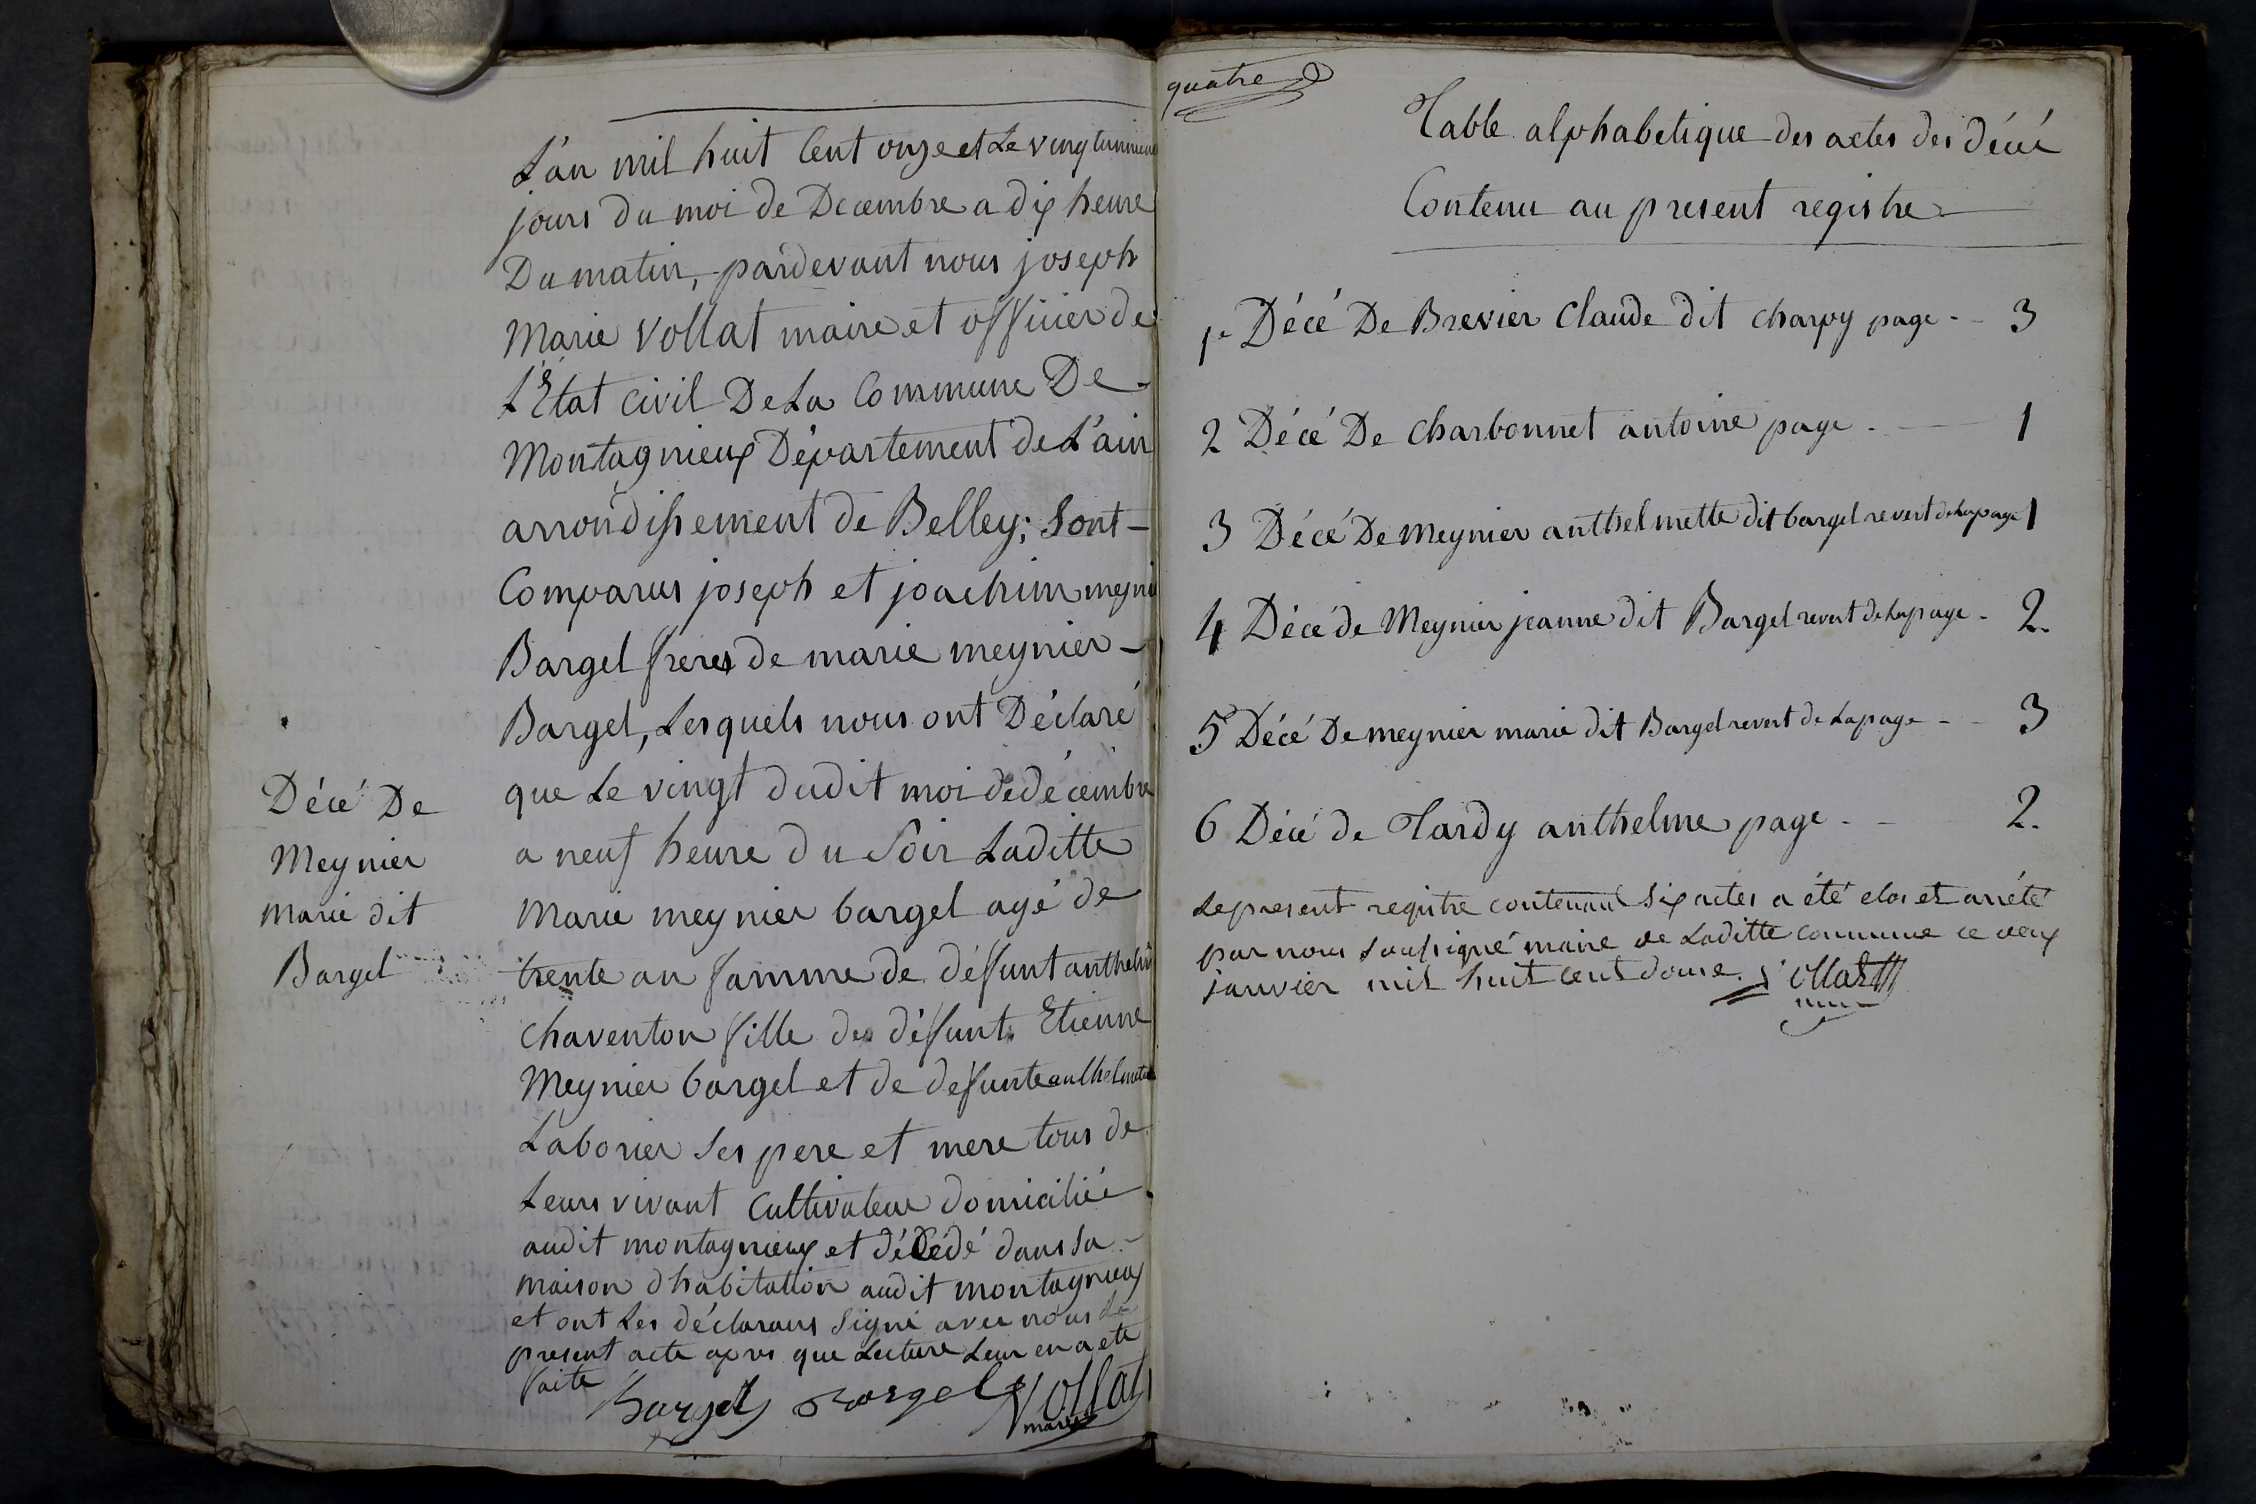 L'an mil huit Cent onze et Le vingtunieme
jours du moi de Decembre a dix heure
Du matin, pardevant nous joseph
Marie Vollat maire et officier de
L'Etat civil De La Commune De
Montagnieux Département de L'ain
arrondissement de Belley; Sont
Comparus joseph et joachim meynier
Bargel freres de marie meynier
Bargel, Lesquels nous ont Déclaré
que Le vingt dudit moi de décembre
a neuf heure du Soir Laditte
Marie meynier bargel agé de
trente an famme de défunt anthelme
Chaventon fille de défunt Etienne
Meynier bargel et de défunte anthelmette
Laborier Ses pere et mere tous de
Leurs vivant Cultivateur domiciliée
audit montagnieux et décédé dans Sa
maison d'habitation audit montagnieux
et ont Les déclarans Signé avec nous Le
present acte apres que Lecture Leur en a ete
faite
Bargel Bargel Vollat
maire
Décé De
Meynier
marie dit
Bargel
quatre
Table alphabetique des actes des décé
Contenu au present registre
1er Décé De Brevier Claude dit charpy page - - 3
2 Décé De Charbonnet antoine page - 1
3 Décé De Meynier anthelmette dit bargel revert de La page 1
4 Décé de Meynier jeanne dit Bargel revert de La page - 2.
5 Décé De meynier marie dit Bargel revert de La page - - 3
6 Décé de Tardy anthelme page - - 2.
Le present registre contenant Six actes a été clos et arrété
par nous Soussigné maire de Laditte commune ce deux
janvier mil huit cent douse. Vollat